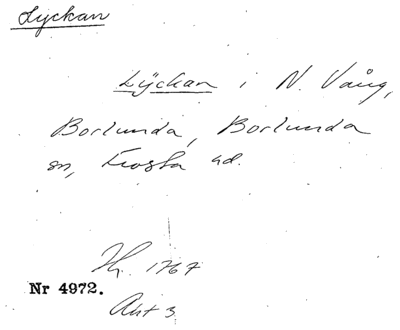 Lyckan
Lÿckan i N. Vång,
Borlunda, Borlunda
sn, Frosta hd.
Hr. 1767
Nr 4972.
Akt 3